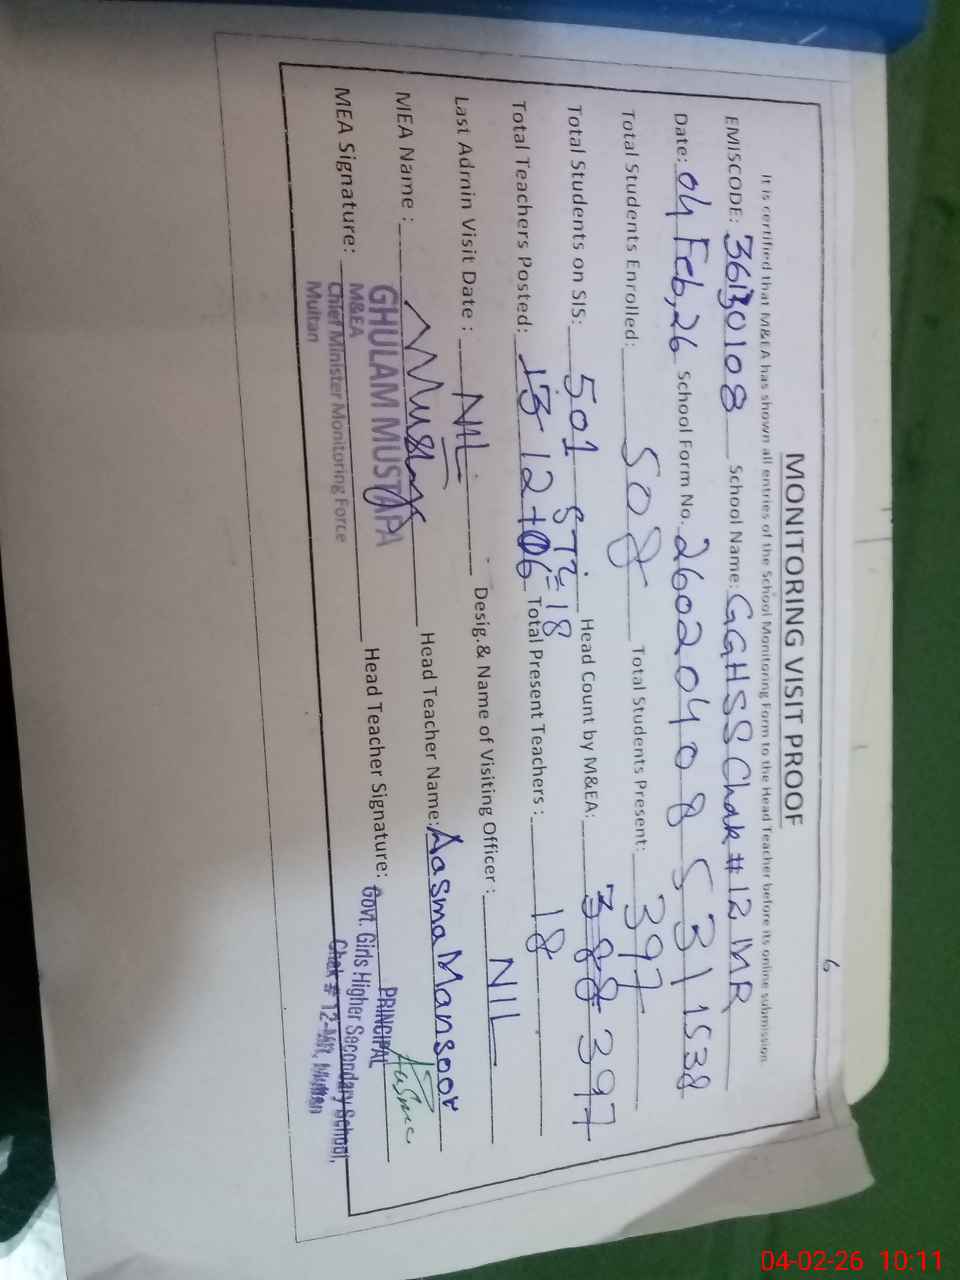 6
MONITORING VISIT PROOF
It is certified that M&EA has shown all entries of the School Monitoring Form to the Head Teacher before its online submission.
EMISCODE: 36130108 School Name: GGHSS Chak # 12 MR
Date: 04 Feb, 26 School Form No. 2602040853 11538
Total Students Enrolled: 508 Total Students Present: 397
Total Students on SIS: 501 STI = 18 Head Count by M&EA: 388 397
Total Teachers Posted: 13 12+06 Total Present Teachers : 18
Last Admin Visit Date : NIL Desig.& Name of Visiting Officer : NIL
MEA Name : Head Teacher Name: Aasma Mansoor
MEA Signature: Head Teacher Signature: Aasma
GHULAM MUSTAFA
M&EA
Chief Minister Monitoring Force
Multan
PRINCIPAL
Govt. Girls Higher Secondary School,
Chak # 12-MR, Multan
04-02-26 10:11